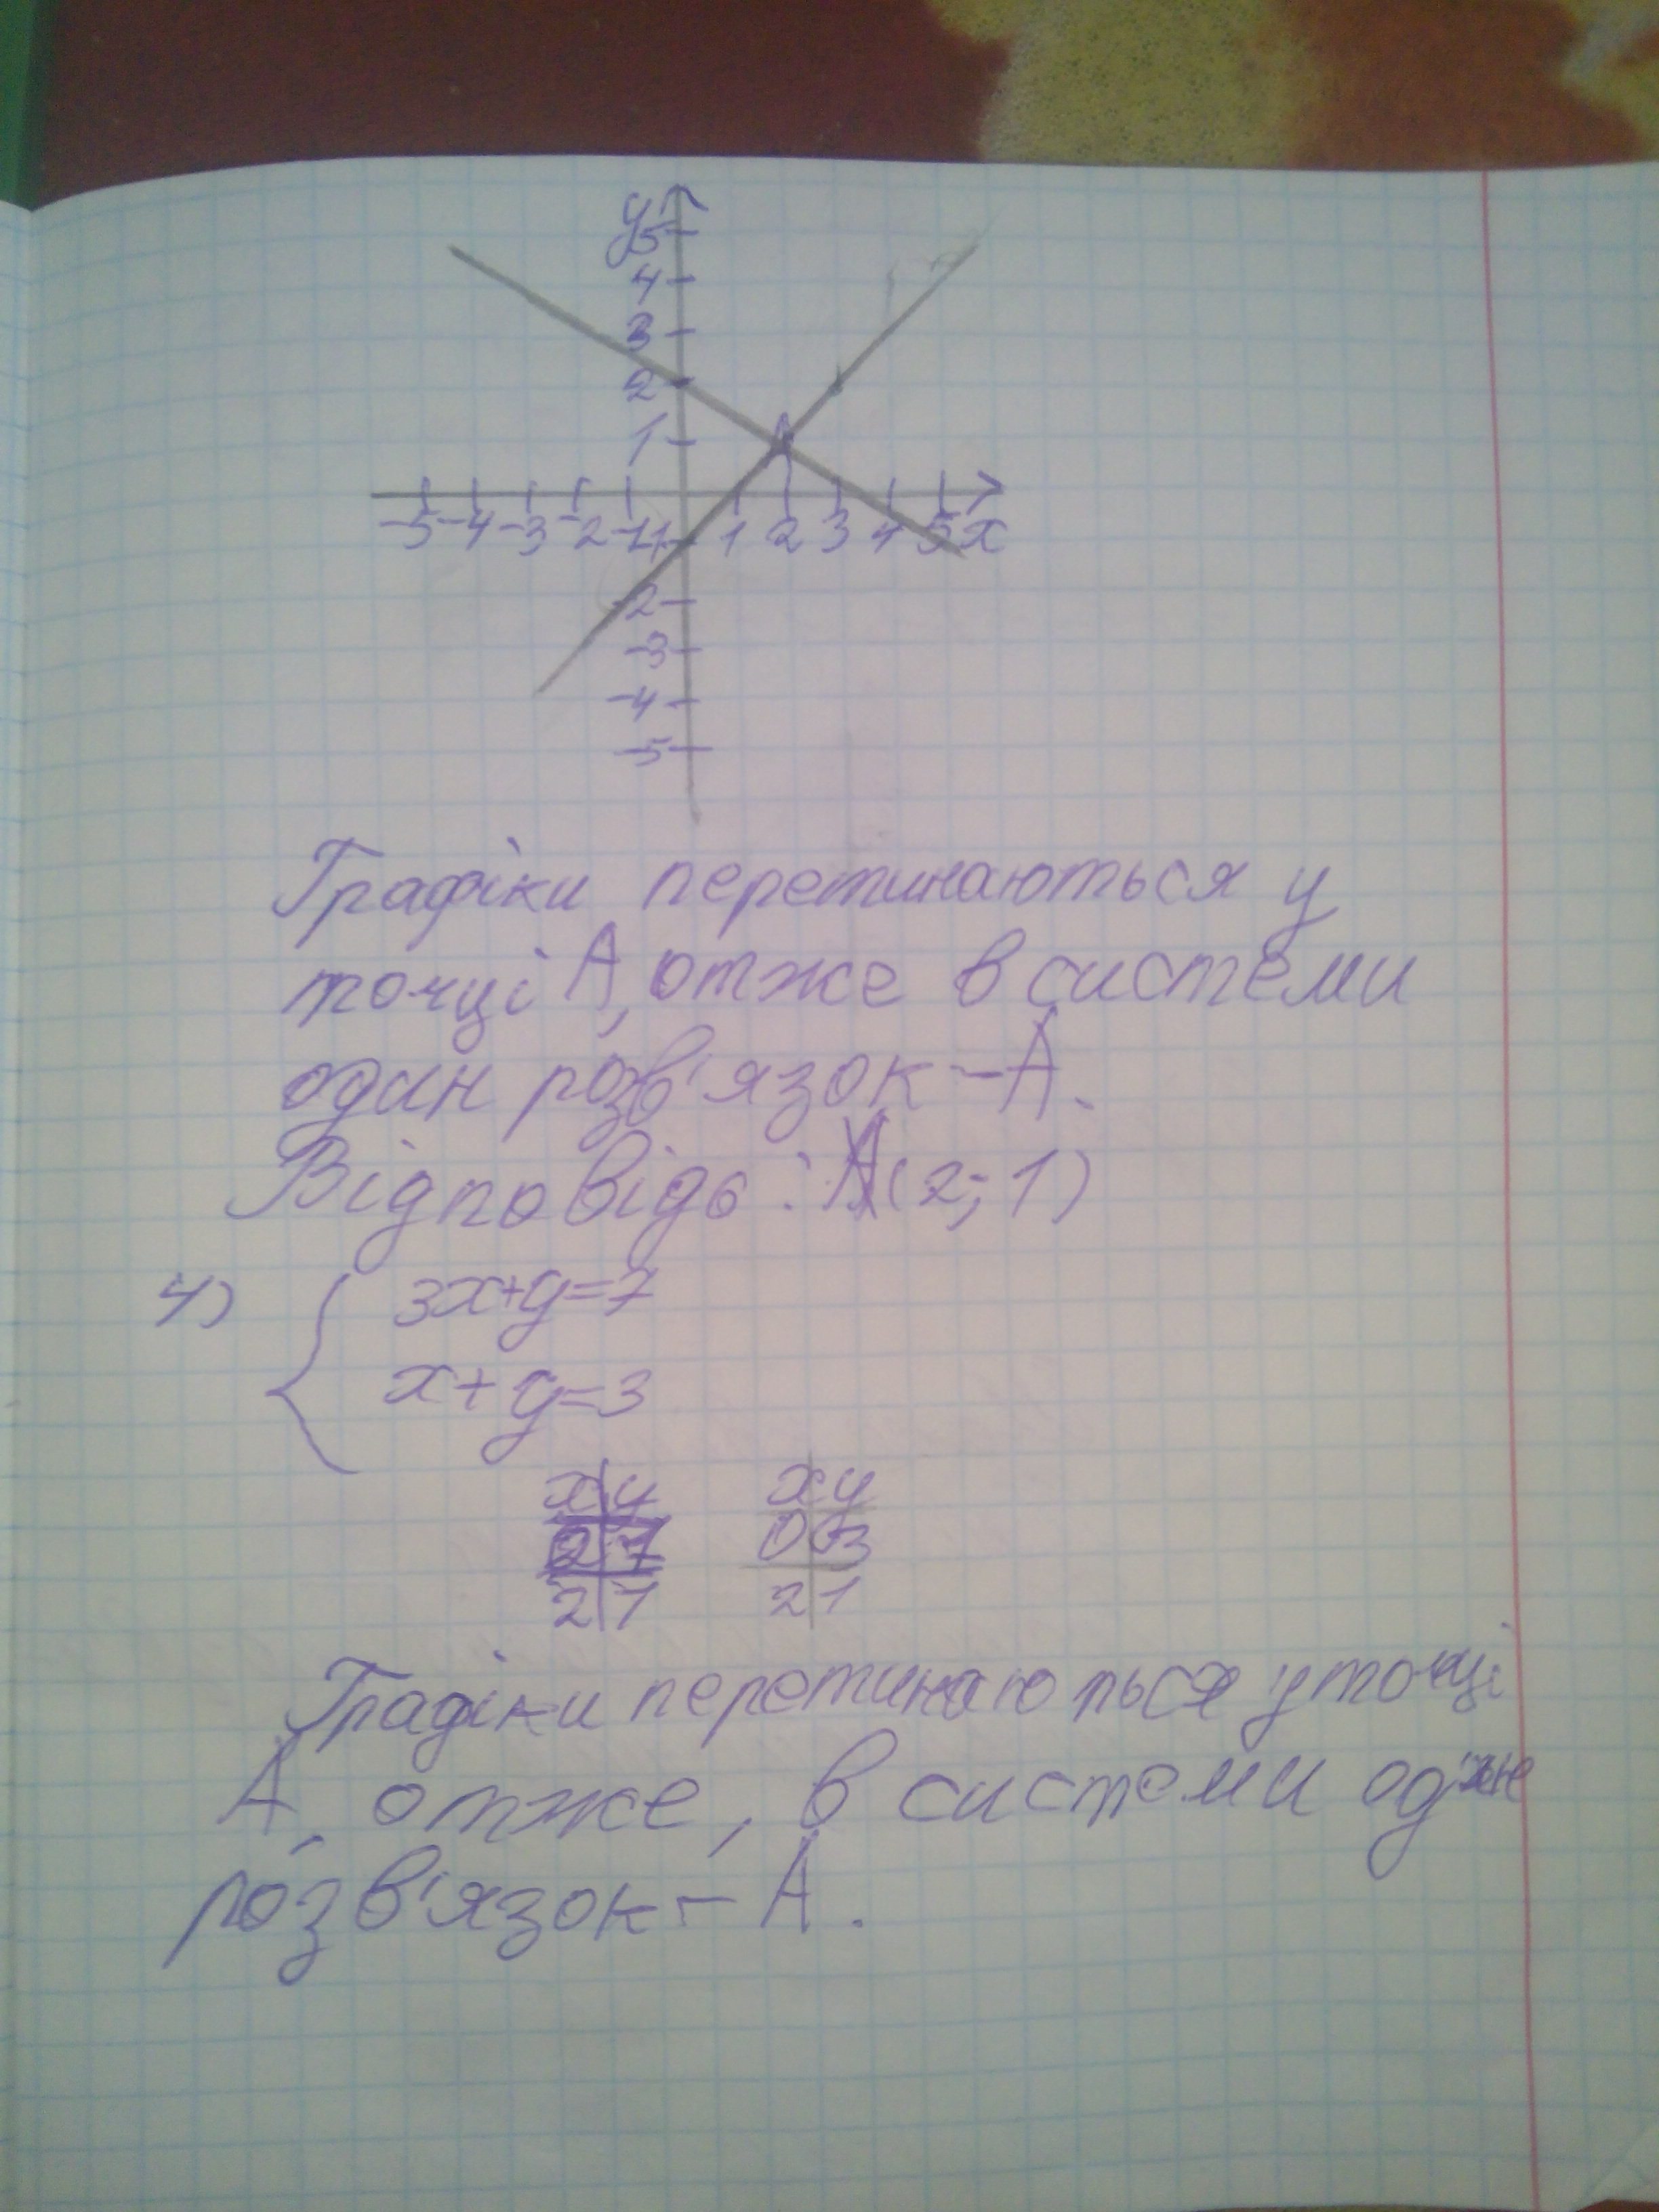 y
5
4
3
2
1
A
-5 -4 -3 -2 -1 -1 1 2 3 4 5 x
-2
-3
-4
-5
Графіки перетинаються у
точці А, отже в системи
один розв'язок – А.
Відповідь: А(2; 1)
4) 3x+y=7
x+y=3
x y x y
0 7 0 3
2 1 2 1
Графіки перетинаються у точці
А, отже, в системи один
розв'язок – А.